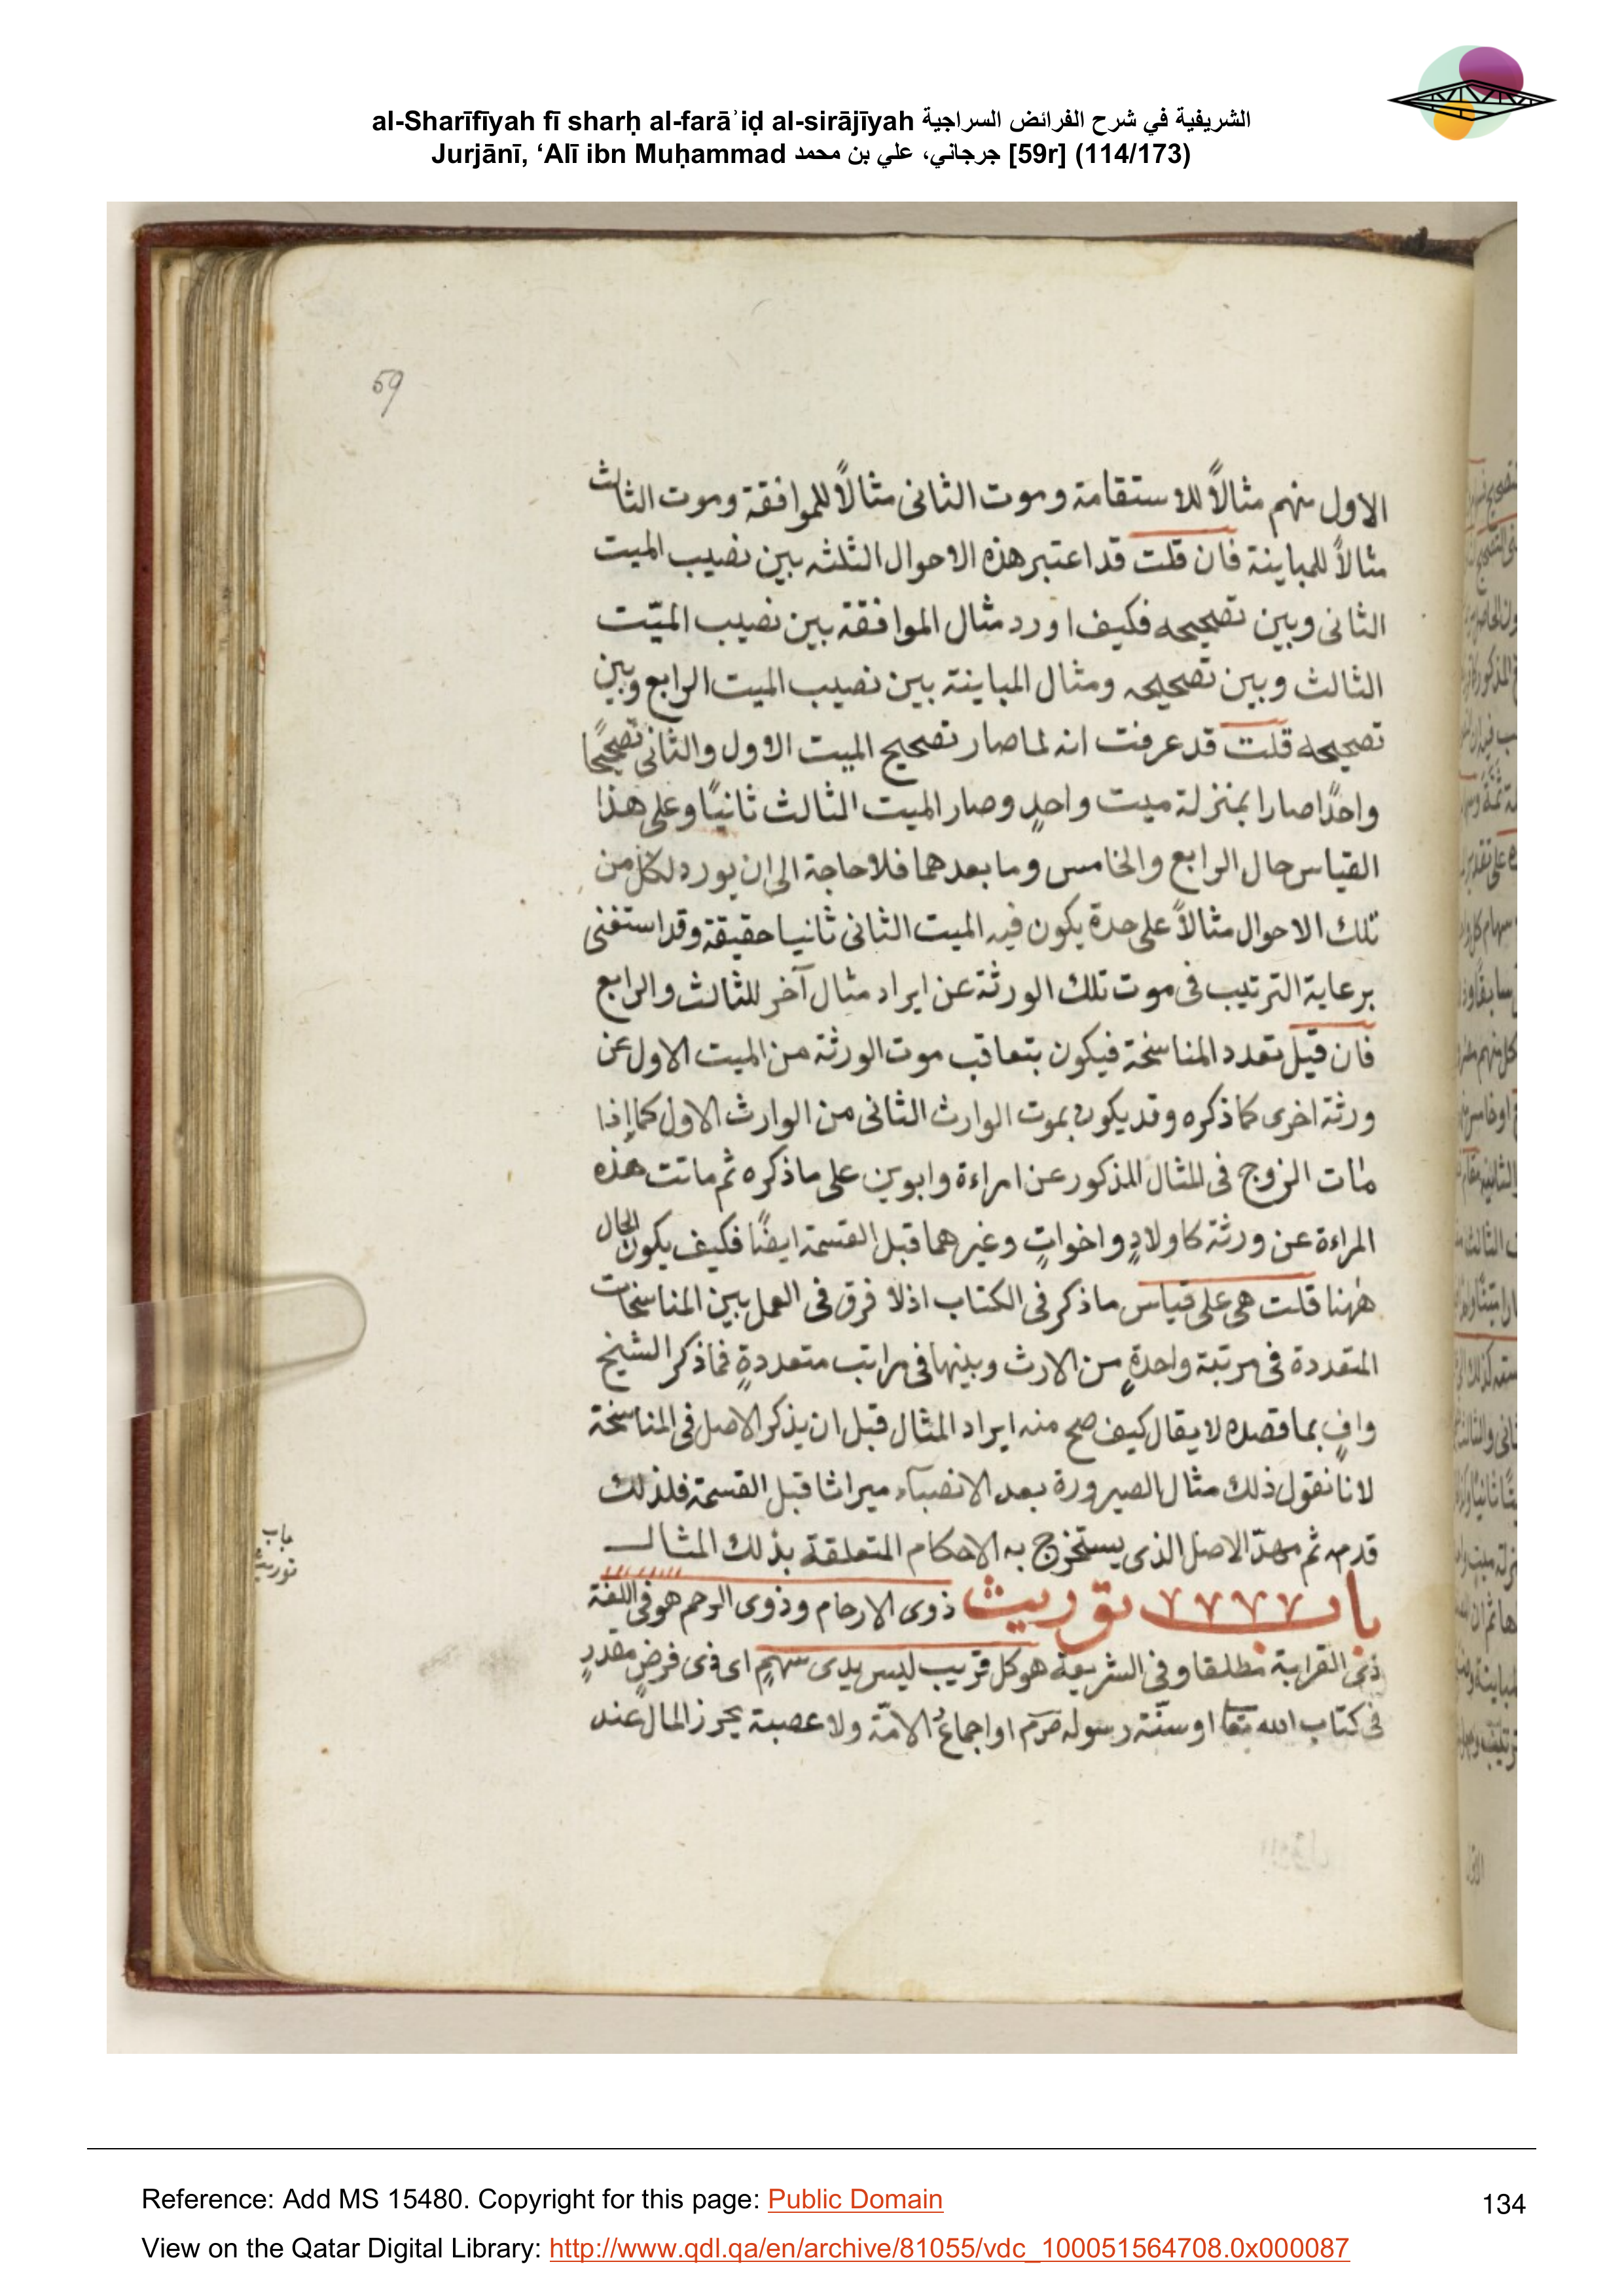 al-Sharīfīyah fī sharḥ al-farāʾiḍ al-sirājīyah الشريفية في شرح الفرائض السراجية
Jurjānī, ‘Alī ibn Muḥammad جرجاني، علي بن محمد [59r] (114/173)
59
الاول منهم مثالاً للاستقامة وموت الثانى مثالاً للموافقة وموت الثالث
مثالاً للمباينة فان قلت قد اعتبر هذه الاحوال الثلثه بين نصيب الميت
الثانى وبين تصحيحه فكيف اورد مثال الموافقة بين نصيب الميّت
الثالث وبين تصحيحه ومثال المباينة بين نصيب الميت الرابع وبين
تصحيحه قلت قد عرفت انه لما صار تصحيح الميت الاول والثانى تصحيحًا
واحدًا صارا بمنزلة ميت واحدٍ وصار الميت الثالث ثانيًا وعلى هذا
القياس حال الرابع والخامس وما بعدهما فلا حاجة الى ان يورد لكل من
تلك الاحوال مثالاً على حدة يكون فيه الميت الثانى ثانيا حقيقة وقد استغنى
برعاية الترتيب فى موت تلك الورثة عن ايراد مثال آخر للثالث والرابع
فان قيل تعدد المناسخة فيكون بتعاقب موت الورثة من الميت الاول عن
ورثة اخرى كما ذكره وقد يكون بموت الوارث الثانى من الوارث الاول كما إذا
مات الزوج فى المثال المذكور عن امراءة وابوين على ما ذكره ثم ماتت هذه
المراءة عن ورثة كاولادٍ واخواتٍ وغيرهما قبل القسمة ايضًا فكيف يكون الحال
ههنا قلت هى على قياس ما ذكر فى الكتاب اذ لا فرق فى العمل بين المناسخات
المتعددة فى مرتبة واحدةٍ من الارث وبينها فى مراتب متعددةٍ فما ذكر الشيخ
وافٍ بما قصده لا يقال كيف صح منه ايراد المثال قبل ان يذكر الاصل فى المناسخة
لانا نقول ذلك مثال الصيرورة بعد الانصباء ميراثا قبل القسمة فلذلك
قدمه ثم مهدّ الاصل الذى يستخرج به الاحكام المتعلقة بذلك المثال
باب توريث ذوى الارحام وذوى الرحم هو فى اللغة
ذى القرابة مطلقا وفى الشريعة هو كل قريب ليس بذى سهمٍ اى ذى فرضٍ مقدرٍ
فى كتاب الله تعا او سنّة رسوله صرم او اجماع الامّة ولا عصبة يحرز المال عند
باب
توريث
Reference: Add MS 15480. Copyright for this page: Public Domain
134
View on the Qatar Digital Library: http://www.qdl.qa/en/archive/81055/vdc_100051564708.0x000087